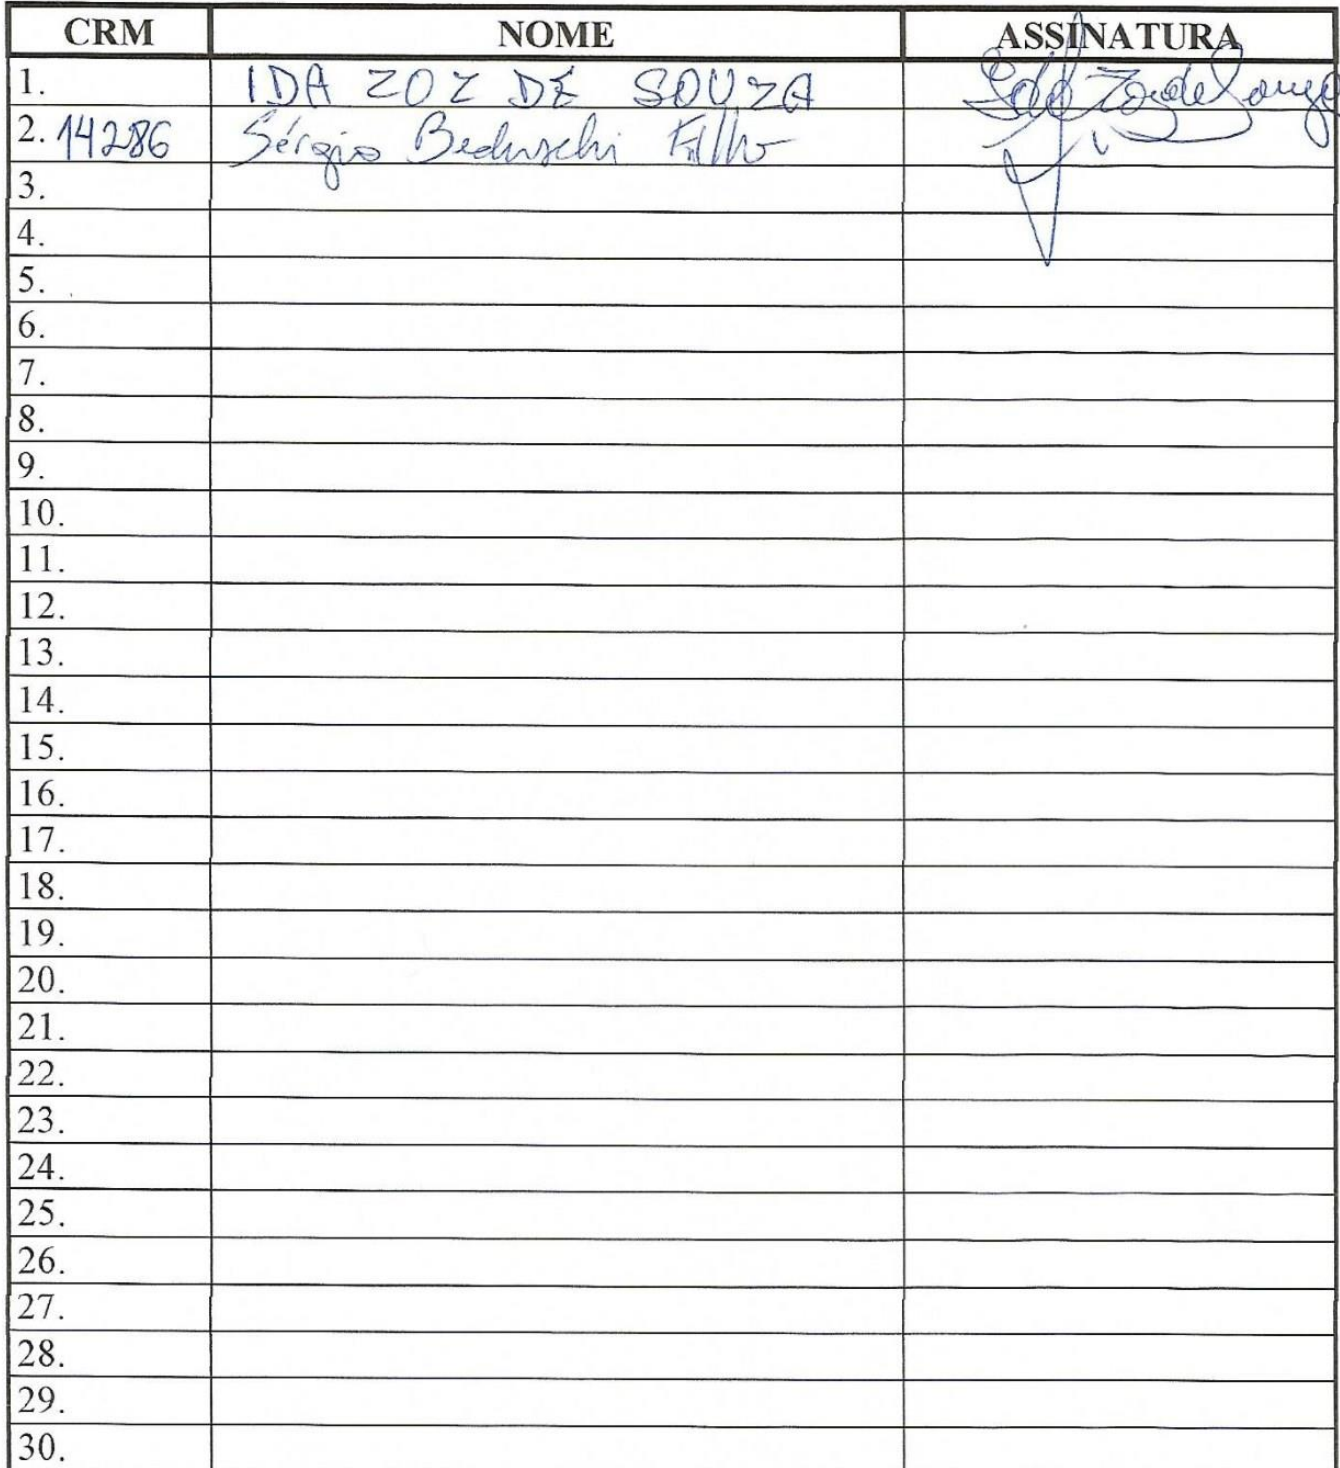 CRM NOME ASSINATURA
1. IDA ZOZ DE SOUZA Ida Zoz de Souza
2. 14286 Sérgio Beduschi Filho
3.
4.
5.
6.
7.
8.
9.
10.
11.
12.
13.
14.
15.
16.
17.
18.
19.
20.
21.
22.
23.
24.
25.
26.
27.
28.
29.
30.